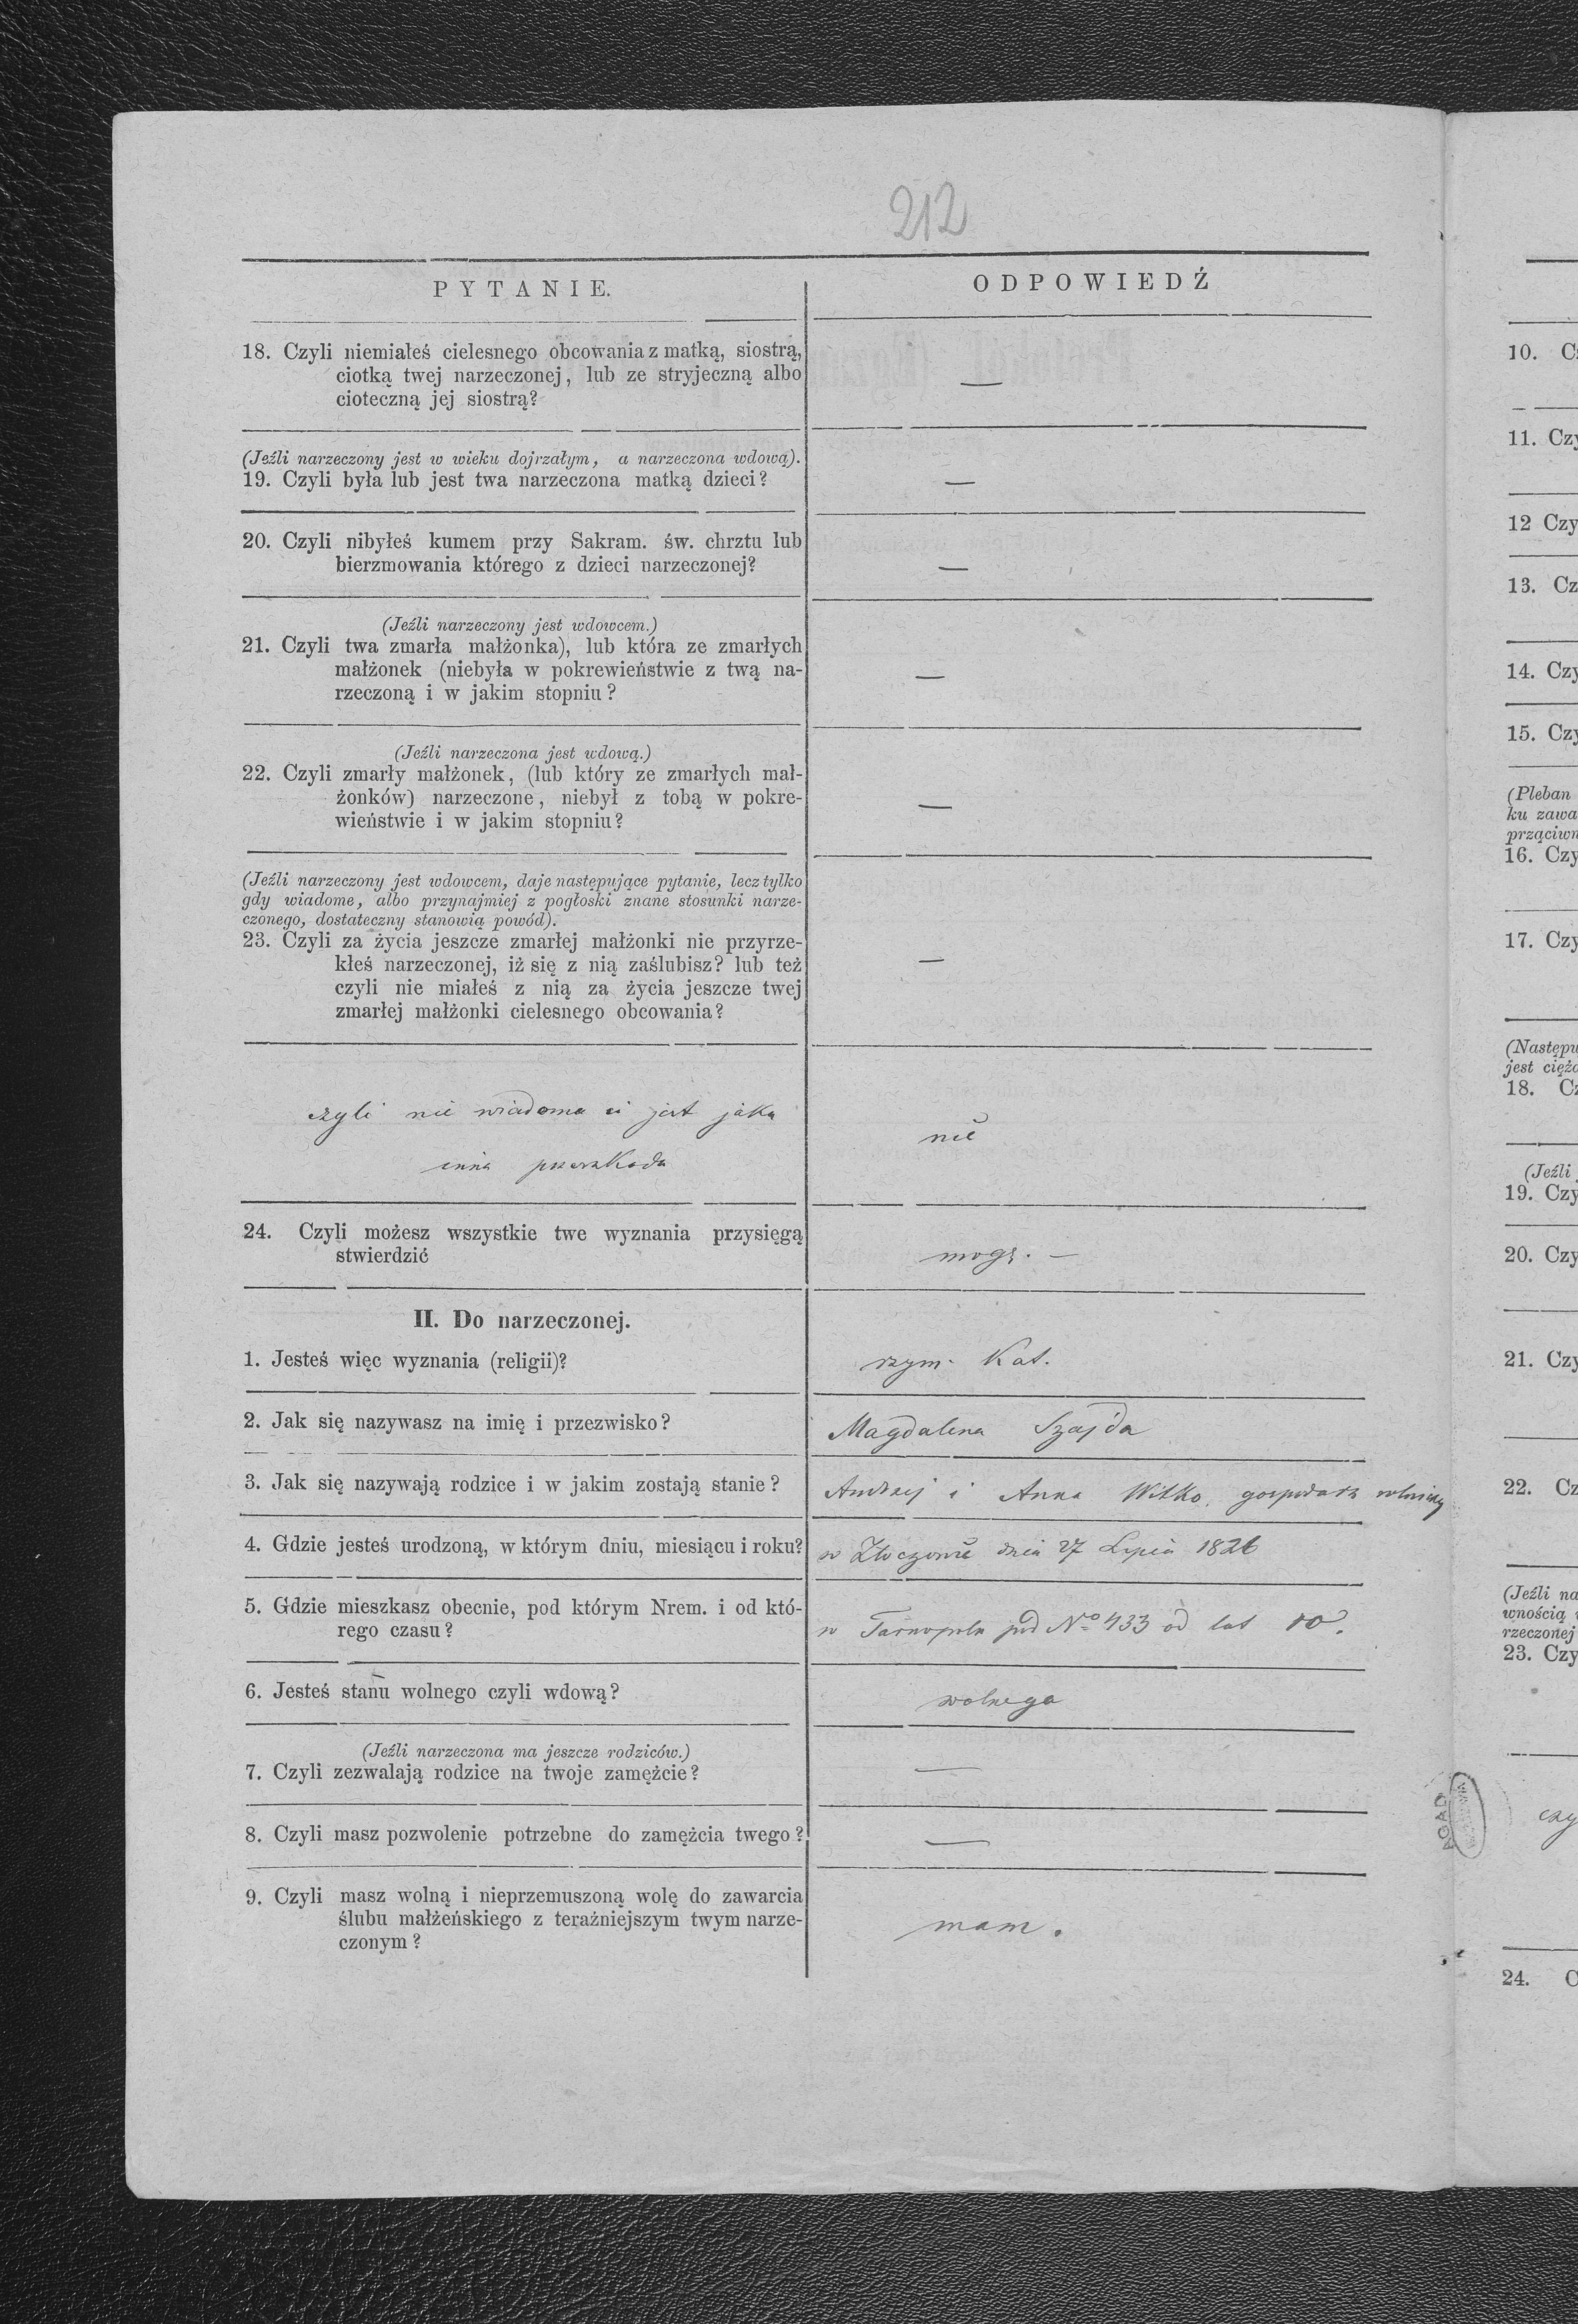 212
PYTANIE.
ODPOWIEDŹ
18. Czyli niemiałeś cielesnego obcowania z matką, siostrą,
ciotką twej narzeczonej, lub ze stryjeczną albo
cioteczną jej siostrą?
—
(Jeźli narzeczony jest w wieku dojrzałym, a narzeczona wdową).
19. Czyli była lub jest twa narzeczona matką dzieci?
—
20. Czyli nibyłeś kumem przy Sakram. św. chrztu lub
bierzmowania którego z dzieci narzeczonej?
—
(Jeźli narzeczony jest wdowcem.)
21. Czyli twa zmarła małżonka), lub która ze zmarłych
małżonek (niebyła w pokrewieństwie z twą na-
rzeczoną i w jakim stopniu?
—
(Jeźli narzeczona jest wdową.)
22. Czyli zmarły małżonek, (lub który ze zmarłych mał-
żonków) narzeczone, niebył z tobą w pokre-
wieństwie i w jakim stopniu?
—
(Jeźli narzeczony jest wdowcem, daje następujące pytanie, lecz tylko
gdy wiadome, albo przynajmiej z pogłoski znane stosunki narze-
czonego, dostateczny stanowią powód).
23. Czyli za życia jeszcze zmarłej małżonki nie przyrze-
kłeś narzeczonej, iż się z nią zaślubisz? lub też
czyli nie miałeś z nią za życia jeszcze twej
zmarłej małżonki cielesnego obcowania?
—
czyli nie wiadoma ci jest jaka
inna przeszkoda
nie
24. Czyli możesz wszystkie twe wyznania przysięgą
stwierdzić
mogę. —
II. Do narzeczonej.
1. Jesteś więc wyznania (religii)?
rzym. Kat.
2. Jak się nazywasz na imię i przezwisko?
Magdalena Szajda
3. Jak się nazywają rodzice i w jakim zostają stanie?
Andrzej i Anna Witko, gospodarz rolniczy
4. Gdzie jesteś urodzoną, w którym dniu, miesiącu i roku?
w Złoczowie dnia 27 Lipca 1826
5. Gdzie mieszkasz obecnie, pod którym Nrem. i od któ-
rego czasu?
w Tarnopolu pod No 433 od lat 10.
6. Jesteś stanu wolnego czyli wdową?
wolnego
(Jeźli narzeczona ma jeszcze rodziców.)
7. Czyli zezwalają rodzice na twoje zamężcie?
—
8. Czyli masz pozwolenie potrzebne do zamężcia twego?
—
9. Czyli masz wolną i nieprzemuszoną wolę do zawarcia
ślubu małżeńskiego z teraźniejszym twym narze-
czonym?
mam.
10. C
11. Czy
12 Czy
13. Cz
14. Czy
15. Czy
(Pleban
ku zawa
prząciwn
16. Czy
17. Czy
(Następu
jest cięż
18. C
(Jeźli
19. Czy
20. Czy
21. Czy
22. Cz
(Jeźli na
wnością
rzeczonej
23. Czy
AGAD
WARSZAWA
czy
24. C